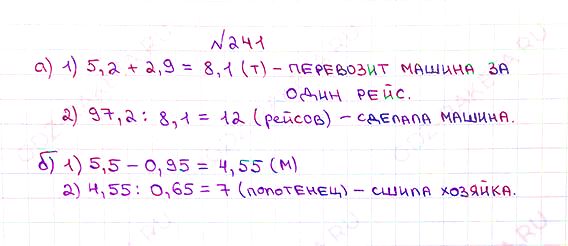 №241
а) 1) 5,2 + 2,9 = 8,1 (т) – перевозит машина за
один рейс.
2) 97,2 : 8,1 = 12 (рейсов) – сделала машина.
б) 1) 5,5 – 0,95 = 4,55 (м)
2) 4,55 : 0,65 = 7 (полотенец) – сшила хозяйка.